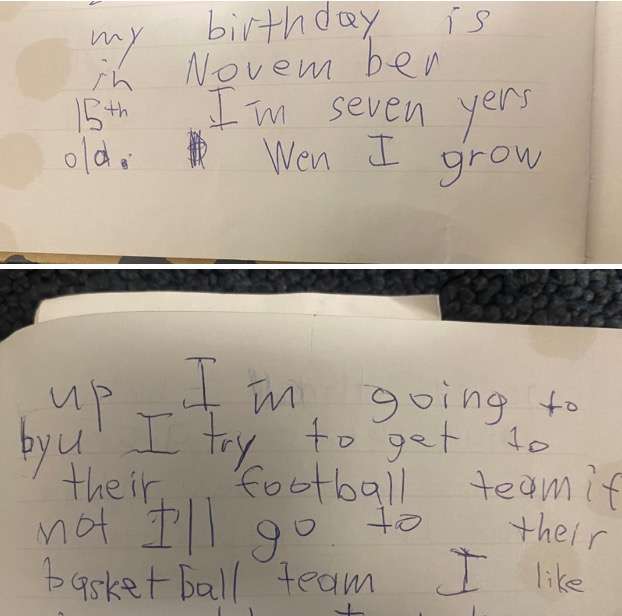 my birthday is
in Novem ber
15th I'm seven yers
old. Wen I grow
up I'm going to
byu I try to get to
their football team if
not I'll go to their
basketball team I like